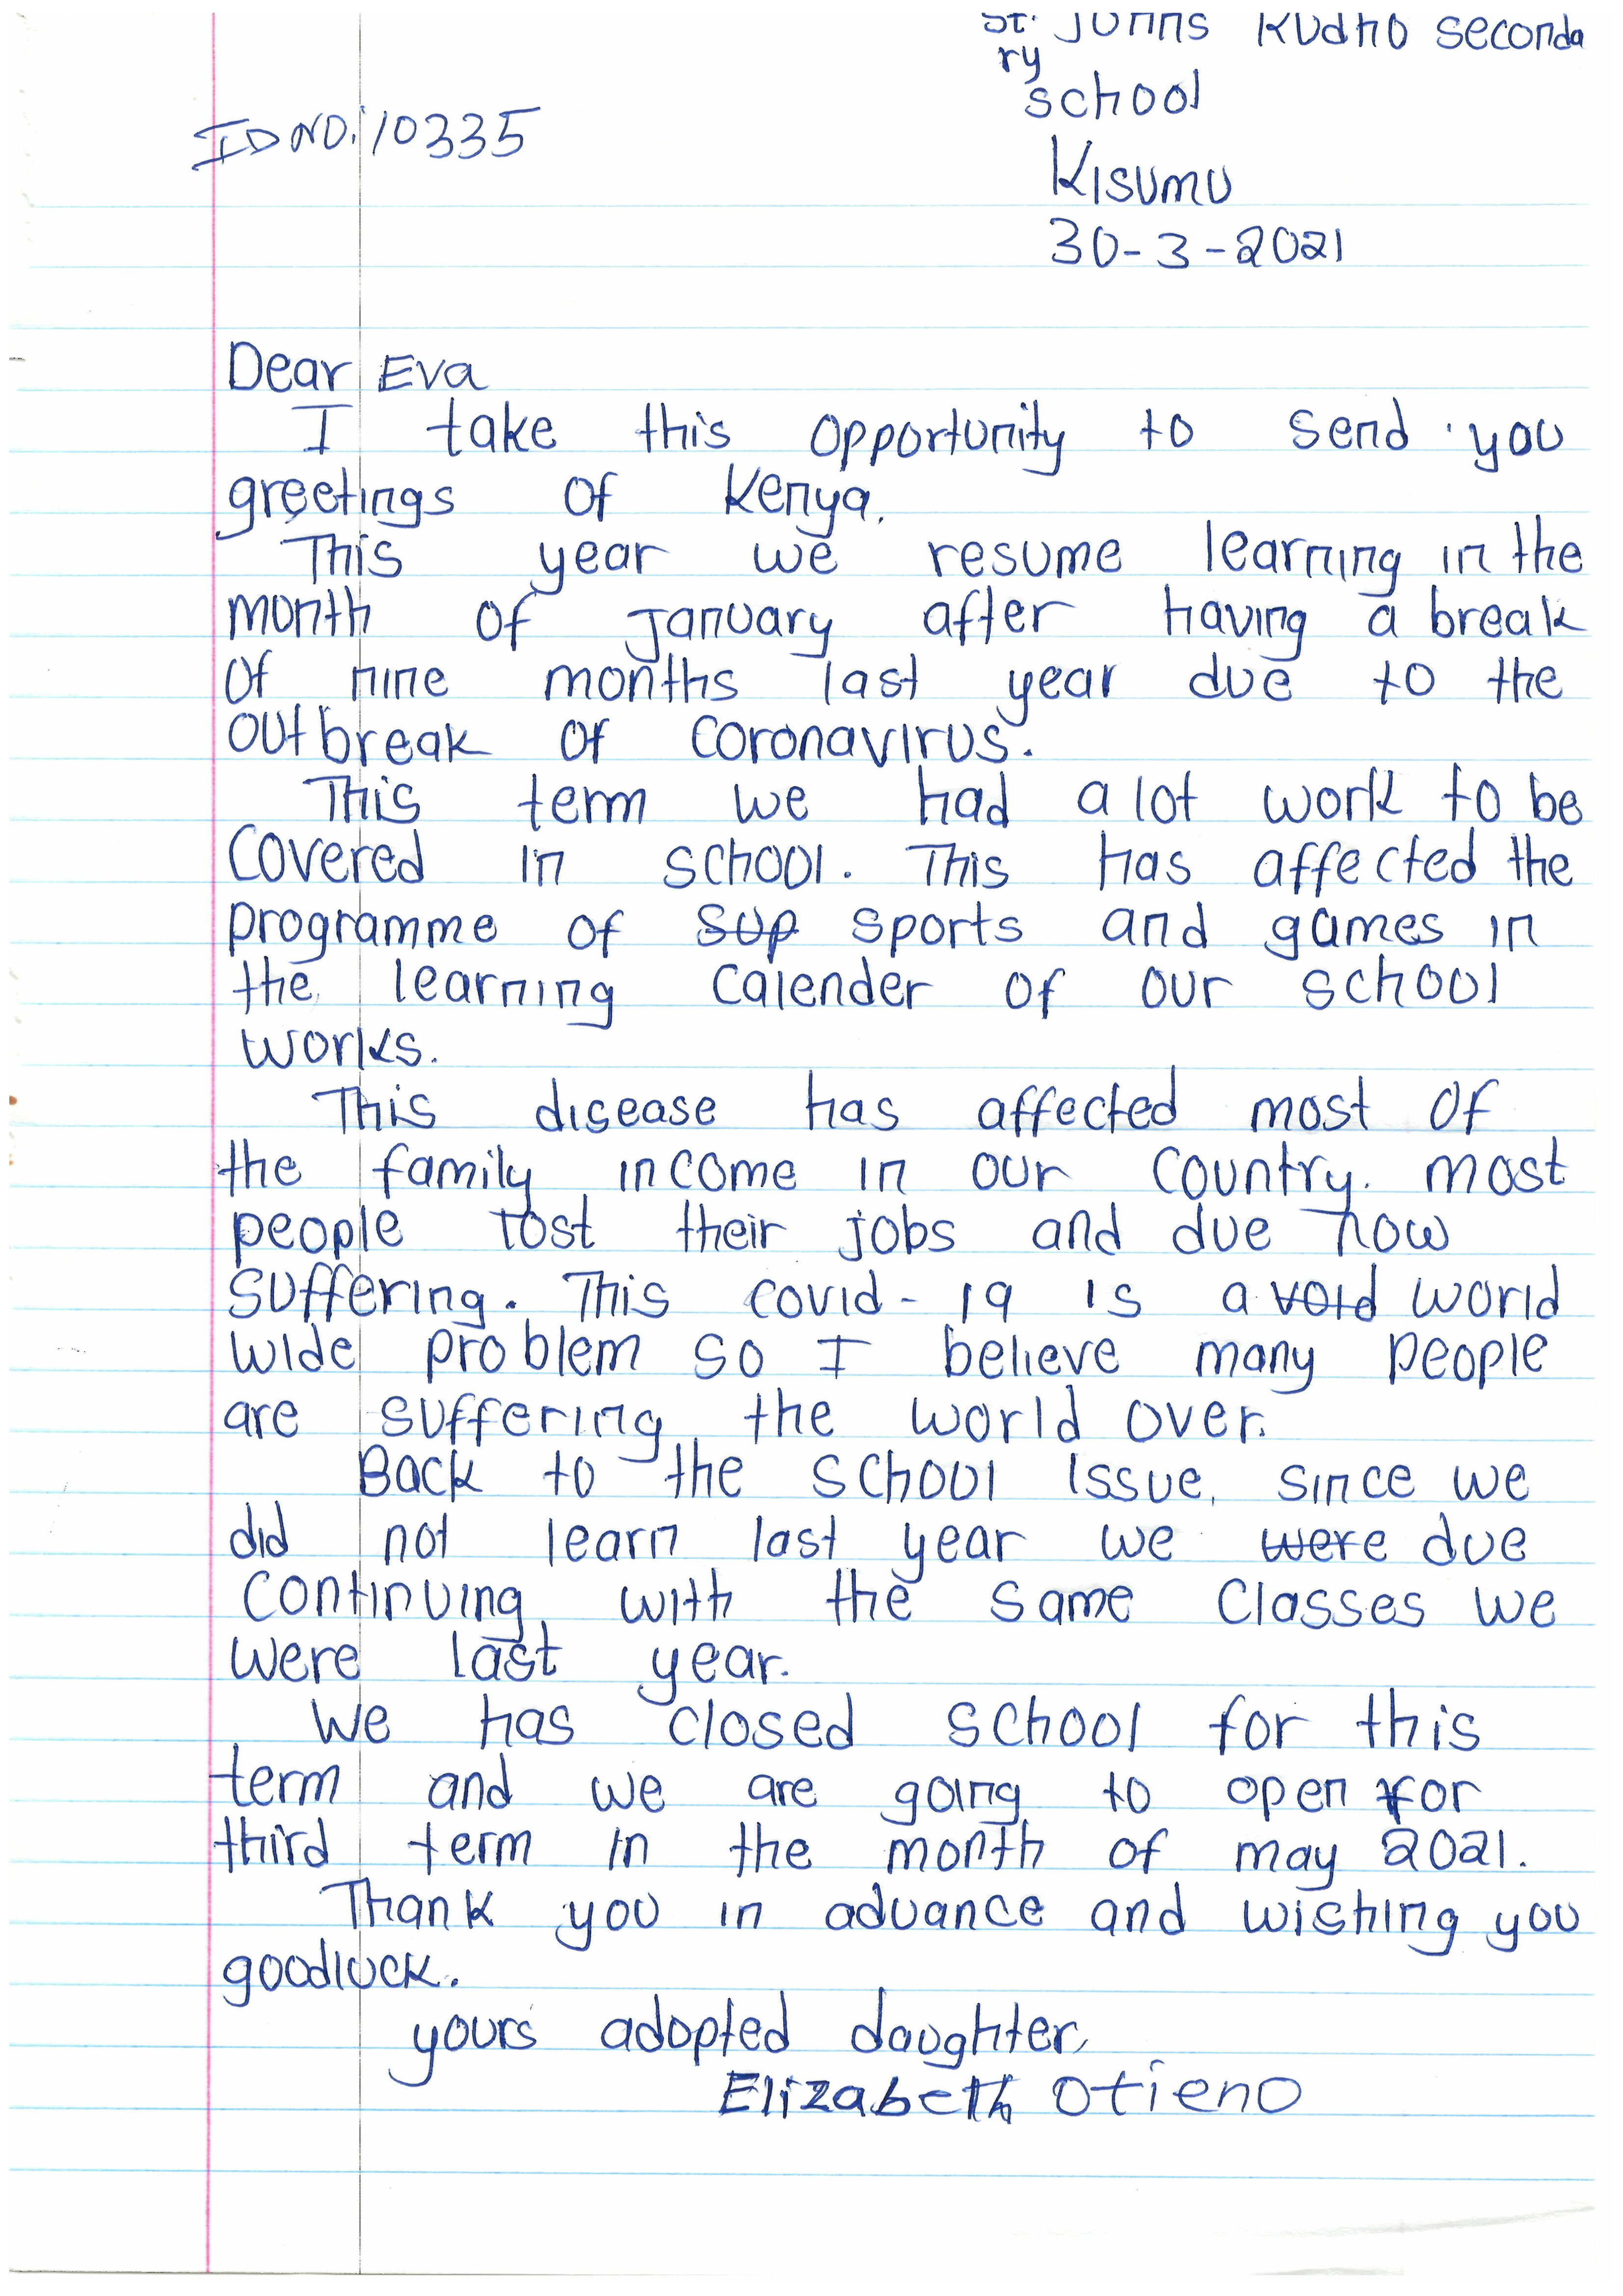 St. Johns Kudho seconda
ry
school
ID NO: 10335
Kisumu
30-3-2021
Dear Eva
I take this opportunity to send you
greetings of Kenya.
This year we resume learning in the
month of january after having a break
of nine months last year due to the
outbreak of coronavirus.
This term we had a lot work to be
covered in school. This has affected the
programme of sup sports and games in
the learning calender of our school
works.
This disease has affected most of
the family income in our country. most
people lost their jobs and due now
suffering. This covid-19 is a void world
wide problem so I believe many people
are suffering the world over.
Back to the school issue, since we
did not learn last year we were due
continuing with the same classes we
were last year.
We has closed school for this
term and we are going to open for
third term in the month of may 2021.
Thank you in advance and wishing you
goodluck.
yours adopted daughter,
Elizabeth Otieno